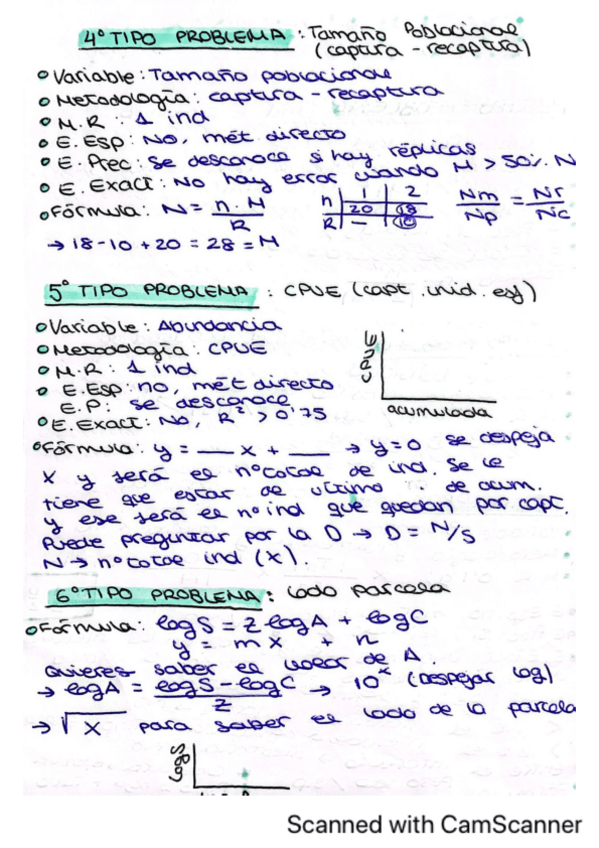 4º TIPO PROBLEMA : Tamaño Poblacional
(captura - recaptura)
Variable : Tamaño poblacional
Metodología : captura - recaptura
M.R : 1 ind
E. Esp : No, mét directo
E. Prec : se desconoce si hay réplicas
E. Exact : No hay error cuando M > 50% N
Fórmula : N = n · M / R
n | 1 | 2
20 | 18
R | — | 10
Nm / Np = Nr / Nc
→ 18 - 10 + 20 = 28 = M
5º TIPO PROBLEMA : CPUE (capt. unid. esf)
Variable : Abundancia
Metodología : CPUE
M.R : 1 ind
E. Esp : no, mét directo
E.P : se desconoce
E. Exact : No, R² > 0'75
CPUE
acumulada
Fórmula : y = __ x + __ → y = 0 se despeja
x y será el nº total de ind. Se le
tiene que restar de último de acum.
y ese será el nº ind que quedan por capt.
Puede preguntar por la D → D = N/S
N → nº total ind (x).
6º TIPO PROBLEMA : Lado parcela
Fórmula : log S = z log A + log C
y = m x + n
Quieres saber el valor de A.
→ log A = log S - log C / z → 10^x (despejar log)
→ √x para saber el lado de la parcela
log S
Scanned with CamScanner